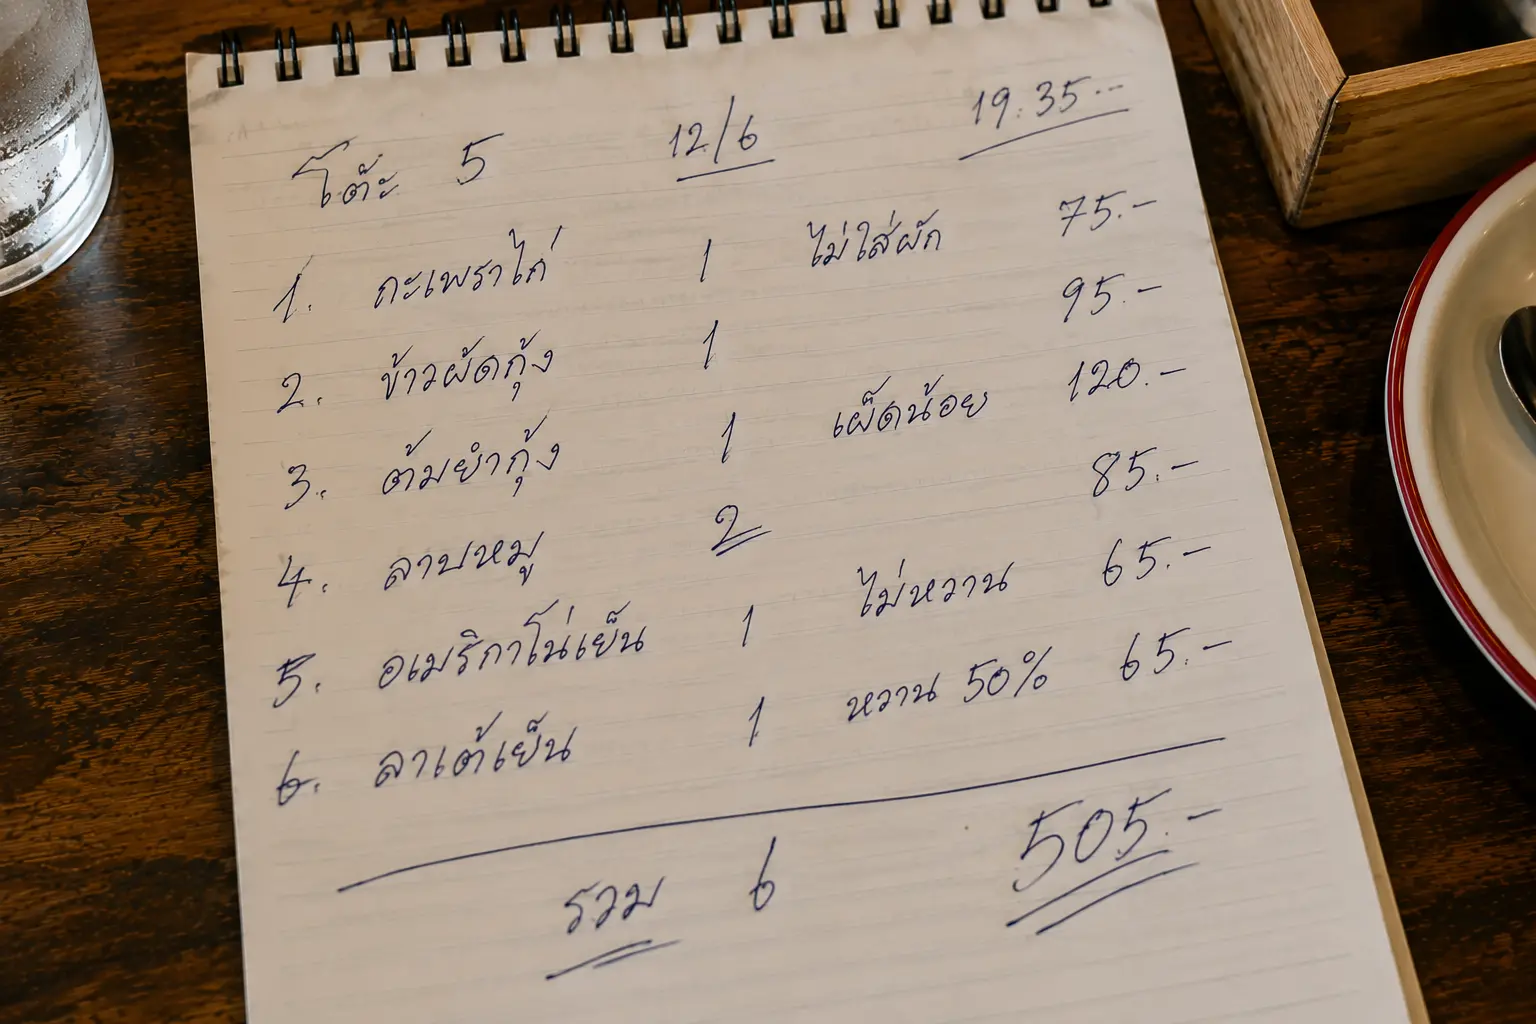 โต๊ะ 5 12/6 19.35--
1. กะเพราไก่ 1 ไม่ใส่ผัก 75.-
2. ข้าวผัดกุ้ง 1 95.-
3. ต้มยำกุ้ง 1 เผ็ดน้อย 120.-
4. ลาบหมู 2 85.-
5. อเมริกาโน่เย็น 1 ไม่หวาน 65.-
6. ลาเต้เย็น 1 หวาน 50% 65.-
รวม 6 505.-